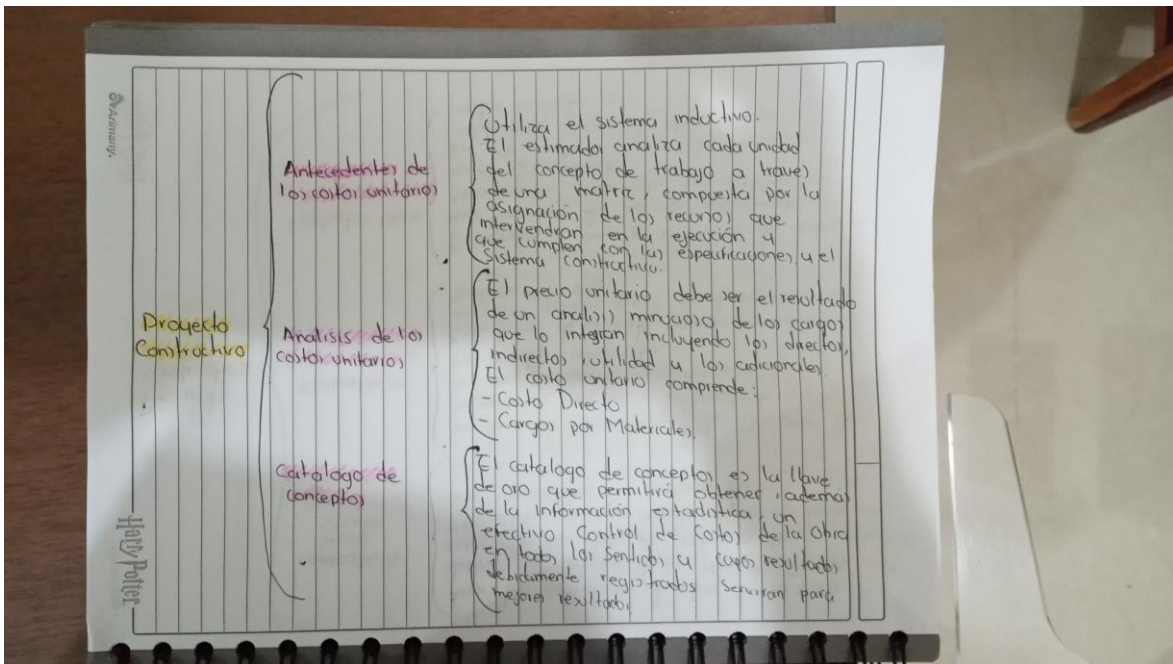 Arimany.
Proyecto
Constructivo
Antecedentes de
los costos unitarios
Utiliza el sistema inductivo.
El estimador analiza cada unidad
del concepto de trabajo a traves
de una matriz, compuesta por la
asignación de los recursos que
intervendran en la ejecución y
que cumplen con las especificaciones y el
sistema constructivo.
Analisis de los
costos unitarios
El precio unitario debe ser el resultado
de un analisis minucioso de los cargos
que lo integran incluyendo los directos,
indirectos, utilidad y los adicionales.
El costo unitario comprende:
- Costo Directo
- Cargos por Materiales.
Catalogo de
conceptos
El catalogo de conceptos es la llave
de oro que permitirá obtener, además
de la información estadística, un
efectivo control de costos de la obra
en todos los sentidos y cuyos resultados
debidamente registrados serviran para
mejores resultados
Harry Potter